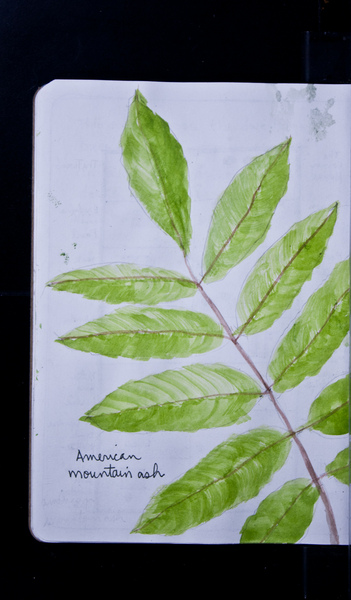 American
mountain ash